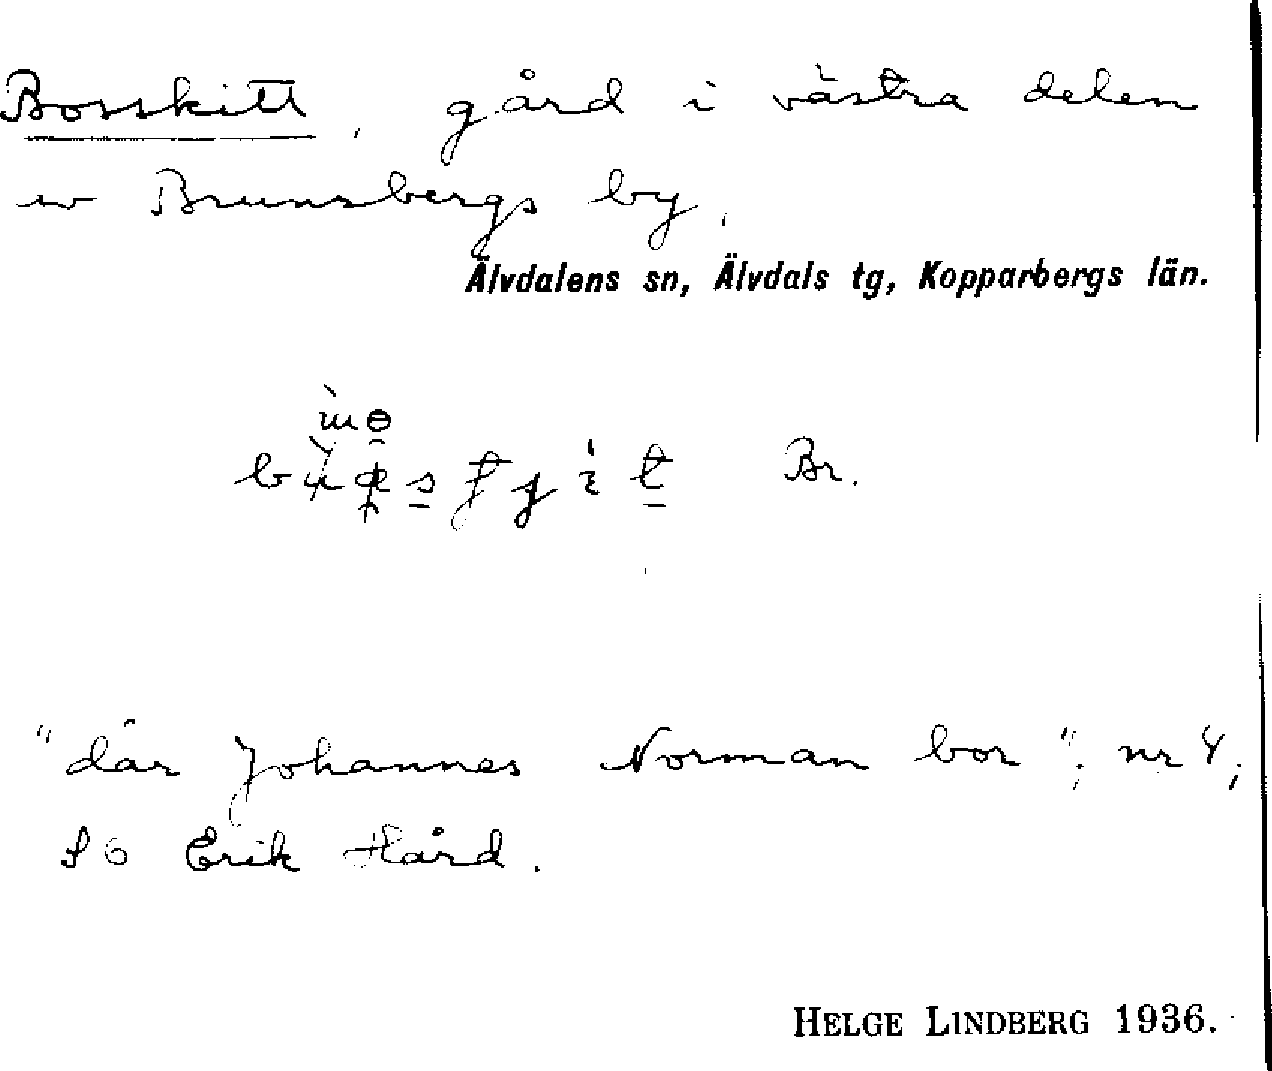 Bosskitt, gård i västra delen
av Brunsbergs by.
Älvdalens sn, Älvdals tg, Kopparbergs län.
Br.
"där Johannes Norman bor"; nr 4;
SO Erik Hård.
HELGE LINDBERG 1936.